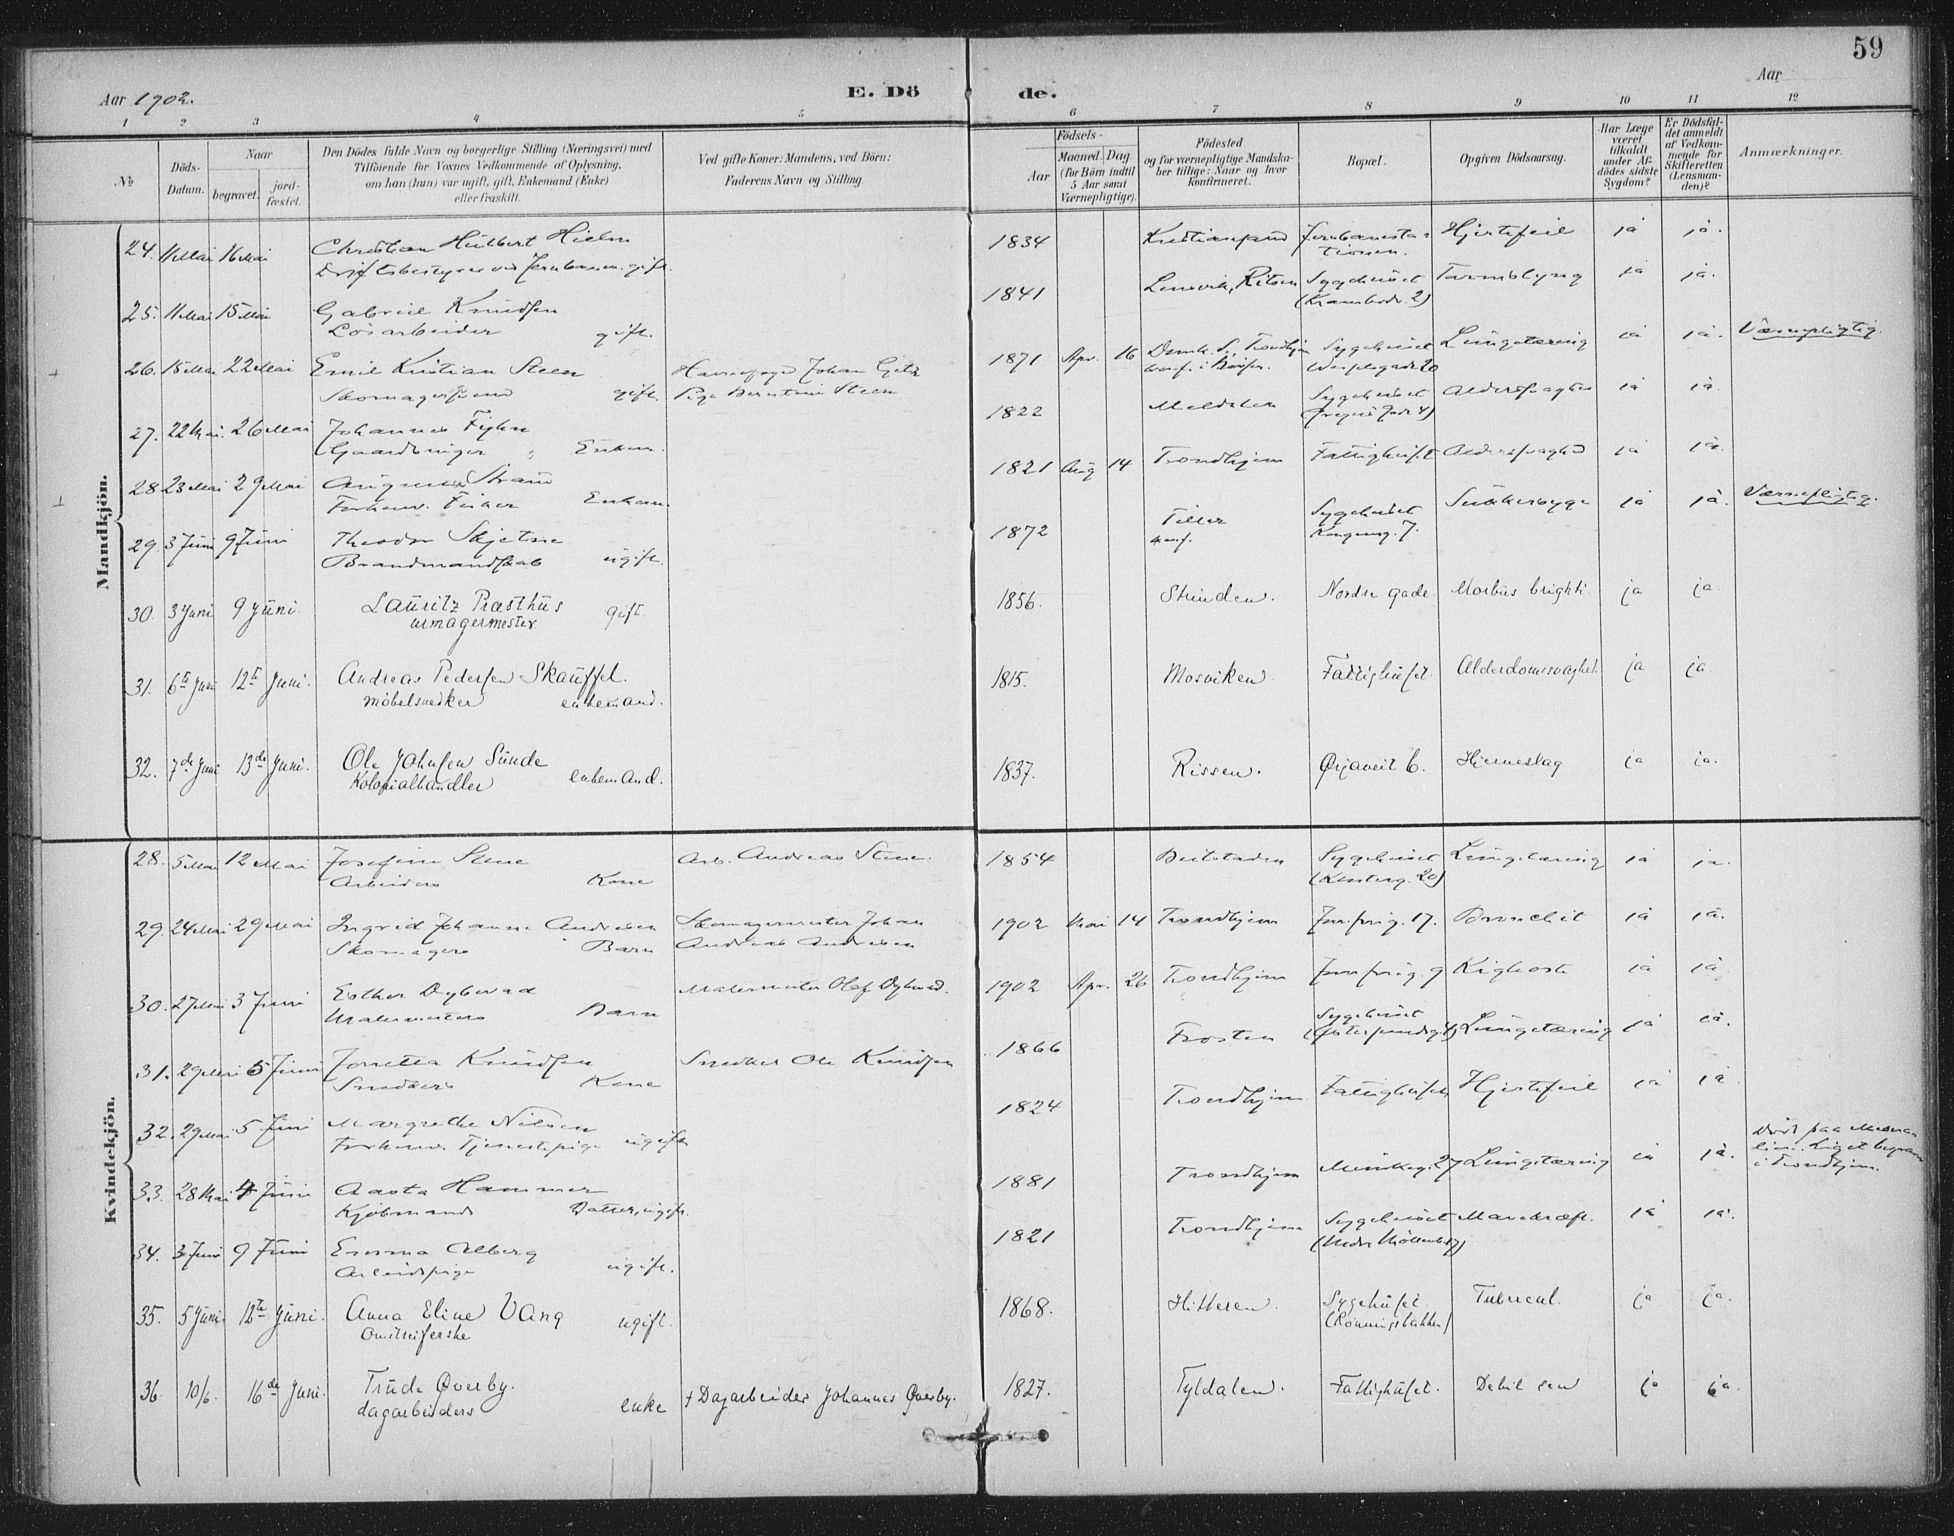 59
Aar 1902.
E. Dö
de.
Aar
1 2 3 4 5 6 7 8 9 10 11 12
№
Döds-Datum.
Naar
begravet.
jord-fæstet.
Den Dödes fulde Navn og borgerlige Stilling (Næringsvei) med
Tilföiende for Voxnes Vedkommende af Oplysning,
om han (hun) var ugift, gift, Enkemand (Enke)
eller fraskilt.
Ved gifte Koner: Mandens, ved Börn:
Faderens Navn og Stilling
Födsels-
Aar
Maaned. Dag
(for Börn indtil
5 Aar samt
Værnepligtige).
Födested
og for værnepligtige Mandska-
ber tillige: Naar og hvor
konfirmeret.
Bopæl.
Opgiven Dödsaarsag.
Har Læge
været
tilkaldt
under Af-
dödes sidste
Sygdom?
Er Dödsfal-
det anmeldt
af Vedkom-
mende for
Skifteretten
(Lensman-
den)?
Anmærkninger.
Mandkjön.
24. 11 Mai 16 Mai Christian Hielm 1834 Kristiansand Jernbanesta- Hjertefeil ja ja.
Driftsbestyrer ved Jernbanen. gift. tionen.
25. 11 Mai 15 Mai Gabriel Knudsen 1841 Lensvik, Rissen Sygehuset Tarmslyng ja ja.
Lösarbeider gift.
26. 15 Mai 22 Mai Emil Kristian Steen Johan 1871 Apr. 16 Trondhjem Sygehuset Lungetæring ja ja. Værnepligtig.
Skomagersvend gift. Pige Berntine Steen
27. 22 Mai. 26 Mai Johannes 1822 Meldalen Sygehuset Aldersvaghed ja ja.
Gaardbruger Enkem.
28 23 Mai 29 Mai August Strand 1821 Aug 14 Trondhjem Fattighuset Aldersvaghed ja ja.
Forhenv. Enkem.
29. 3 Juni 9 Juni Theodor Skjetne 1872 Tiller Sygehuset Sukkersyge ja ja. Værnepligtig.
Brandmandskab ugift. konf. Kongensg. 7.
30. 3 Juni 9 Juni. Lauritz Præsthus 1856. Strinden. Nordre gade. Morbus brighti ja ja.
urmagermester gift.
31. 6te Juni 12te Juni. Andreas Pedersen Skauffel. 1815. Mosviken. Fattighuset. Alderdomssvaghed. ja ja
möbelsnedker enkemand.
32. 7de Juni 13de Juni. Ole Johnsen Sunde 1837. Rissen. Ørjaveit 6. Hjerneslag ja ja.
Kolonialhandler enkemand.
Kvindekjön.
28. 5 Mai 12 Mai Josefine Stene Arb. Andreas Stene. 1854 Beitstaden Sygehuset Lungetæring ja ja.
Arbeiders Kone
29. 24 Mai 29 Mai Ingrid Johanne Andresen Skomagermester Johan 1902 Mai 14 Trondhjem 17. Bronchit ja ja.
Skomagers Barn Andreas Andresen
30. 27 Mai 3 Juni Esther Dybwad Malermester Olaf Dybwad. 1902 Apr. 26 Trondhjem 9 Kighoste ja ja
Malermesters Barn
31. 29 Mai 5 Juni Knudsen Snedker Ole Knudsen 1866 Frosten Sygehuset Lungetæring ja ja.
Snedkers Kone
32. 29 Mai 5 Juni Margrethe Nilsen 1824 Trondhjem Fattighuset Hjertefeil ja ja.
Forhenv. Tjenestepige ugift
33. 28 Mai 4 Juni Aasta Hammer 1881 Trondhjem Munkeg. 27 Lungetæring ja ja. Död paa
Kjöbmands Datter, ugift. Liget begravet
i Trondhjem.
34. 3 Juni 9 Juni Emma Alberg 1821 Trondhjem Sygehuset Mavekræft. ja ja.
Arbeidspige ugift.
35. 5 Juni 12te Juni. Anna Eline Vang 1868. Hitteren. Sygehuset. Tubercul. ja ja.
ugift. (Rönningsbakken)
36. 10/6. 16de Juni. Trude Øverby. † Dagarbeider Johannes Øverby. 1827. Tyldalen. Fattighuset. Debil sen ja ja.
dagarbeiders enke